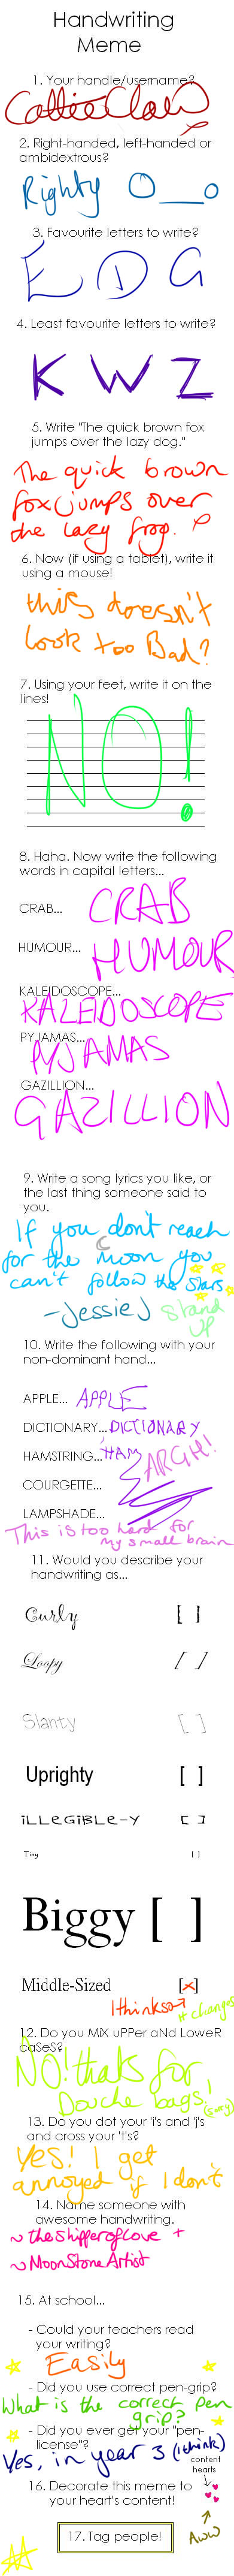 Handwriting
Meme
1. Your handle/username?
CattieClaw
2. Right-handed, left-handed or
ambidextrous?
Righty O__o
3. Favourite letters to write?
E D G
4. Least favourite letters to write?
K W Z
5. Write "The quick brown fox
jumps over the lazy dog."
The quick brown
fox jumps over
the lazy frog. :P
6. Now (if using a tablet), write it
using a mouse!
this doesn't
look too Bad?
7. Using your feet, write it on the
lines!
NO!
8. Haha. Now write the following
words in capital letters...
CRAB... CRAB
HUMOUR... HUMOUR
KALEIDOSCOPE...
KALEIDOSCOPE
PYJAMAS...
PYJAMAS
GAZILLION...
GAZILLION
9. Write a song lyrics you like, or
the last thing someone said to
you.
If you don't reach
for the moon you
can't follow the stars
-Jessie J Stand
UP
10. Write the following with your
non-dominant hand...
APPLE... APPLE
DICTIONARY... DICTIONARY
HAMSTRING... HAM ARGH!
COURGETTE...
LAMPSHADE...
This is too hard for
my small brain
11. Would you describe your
handwriting as...
Curly [ ]
Loopy [ ]
Slanty [ ]
Uprighty [ ]
iLLeGiBLe-Y [ ]
Tiny [ ]
Biggy [ ]
Middle-Sized [x]
I think so → it changes
12. Do you MiX uPPer aNd LoweR
caSeS?
NO! thats for
Douche bags! (sorry)
13. Do you dot your 'i's and 'j's
and cross your 't's?
Yes! I get
annoyed if I don't
14. Name someone with
awesome handwriting.
~ theshipperoflove +
~ MoonStoneArtist
15. At school...
- Could your teachers read
your writing?
Easily
- Did you use correct pen-grip?
What is the correct pen
grip?
- Did you ever get your "pen-
license"?
Yes, in year 3 (I think)
content
hearts
16. Decorate this meme to
your heart's content!
17. Tag people!
Aww